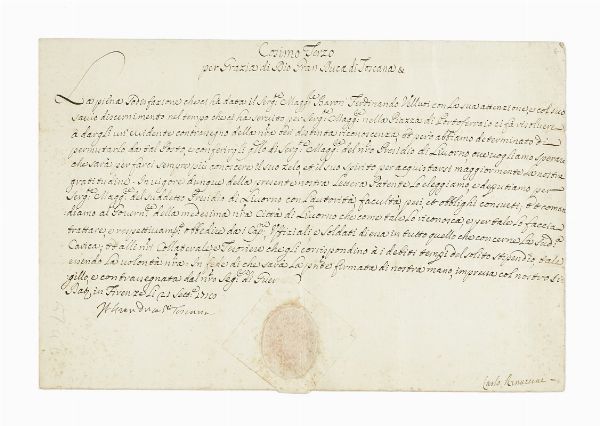 Cosimo Terzo
per Grazia di Dio Gran Duca di Toscana &
La piena sodisfazione che ci ha data il Serg.e Magg.e Baron Ferdinando Velluti con la sua attenzione, e col suo
savio discernimento nel tempo che ci ha servito per Serg.e Magg.e nella Piazza di Portoferraio ci fà risolvere
à dargli un' evidente contrasegno della nr̃a distinta riconoscenza; et però abbiamo determinato di
permutarlo da tal Posto, e conferirgli di Serg.e Magg.e del nr̃o Presidio di Livorno ove vogliamo sperare
che sarà per farci sempre più conoscere il suo zelo, et il suo spirito per acquistarsi maggiormente la nostra
gratitudine. In vigore dunque della presente nostra Lettera Patente lo eleggiamo, e deputiamo per
Serg.e Magg.e del suddetto Presidio di Livorno con l'autorità, facoltà, pesi, et obblighi consueti, et coman
diamo al Govern.e della medesima nr̃a Città di Livorno che come tale lo riconosca, e per tale lo faccia
trattare, e rispettivam.e obbedire da i Cap.ni Ufiziali, e Soldati di essa in tutto quello che concerne la sud.a
Carica; et alli nr̃i Collaterale, e che gli corrispondino à i debiti tempi del solito stipendio, tale
essendo la volontà nr̃a. In fede di che sarà la pñte firmata di nostra mano, impressa col nostro Si
gillo, e contrasegnata dal nr̃o Seg.o di Guer
Dat. in Firenze li 21 Sett.e 1710
Il Gran Duca di Toscana
Carlo Rinuccini